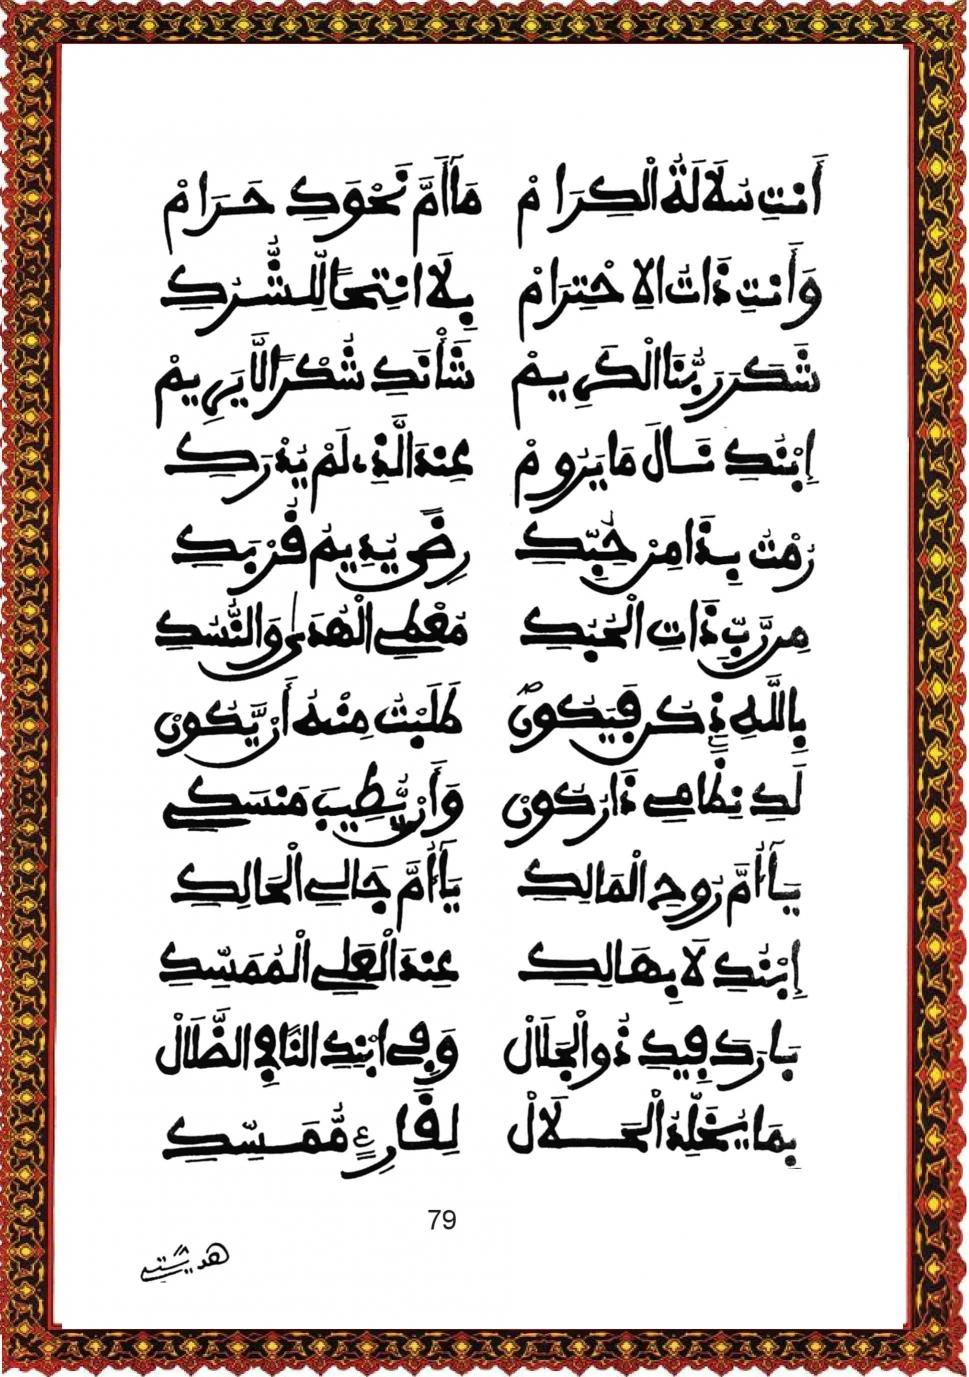 أَنتِ سُلَالَةُ الْكِرَامْ مَاأَمَّ نَحْوَكِ حَرَامْ
وَأَنتِ ذَاتُ الِاحْتِرَامْ بِلَا انتِحَالٍ لِلشُّرُكِ
شَكَرَ رَبُّنَا الْكَرِيمْ شَأْنَكِ شُكْرًا لَّا يَرِيمْ
إِبْنُكِ نَالَ مَا يَرُومْ عِندَ الَّذِي لَمْ يُدْرَكِ
رُمْتُ بِذَا مِنْ حُبِّكِ رِضًى يُدِيمُ قُرْبَكِ
مِن رَّبِّ ذَاتِ الْحُبُكِ مُعْطِي الْهُدَى وَالنُّسُكِ
بِاللَّهِ ذِي كُن فَيَكُونْ طَلَبْتُ مِنْهُ أَنْ يَّكُونْ
لَكِ نِظَامِي ذَا رُكُونْ وَأَنْ يُّطِيبَ مَنسَكِي
يَا أُمَّ رُوحِ الْمَالِكِ يَا أُمَّ جَالِي الْحَالِكِ
إِبْنُكِ لَا بِهَالِكِ عِندَ الْعَلِي الْمُمَسِّكِ
بَارَكَ فِيكِ ذُو الْجَلَالْ وَفِي ابْنِكِ النَّافِي الضَّلَالْ
بِمَا يُخَلِّدُ الْحَلَالْ لِقَارِئٍ مُّمَسِّكِ
79